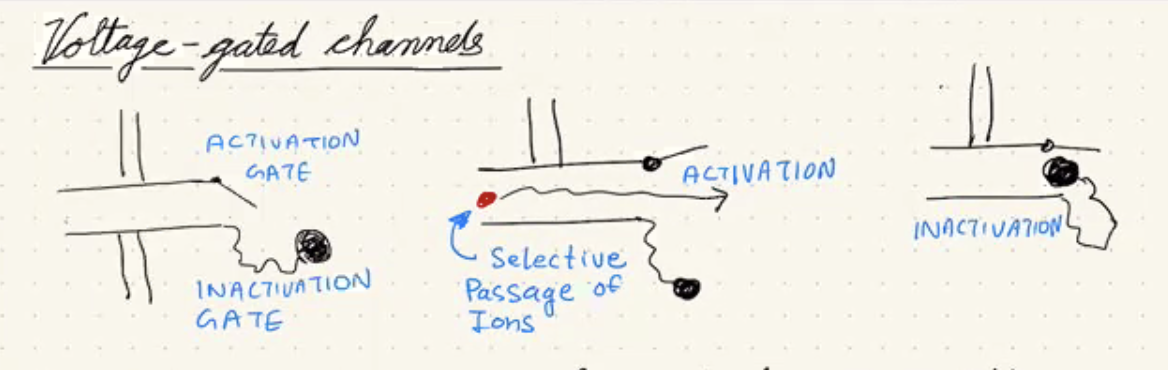 Voltage-gated channels
ACTIVATION
GATE
INACTIVATION
GATE
ACTIVATION
Selective
Passage of
Ions
INACTIVATION